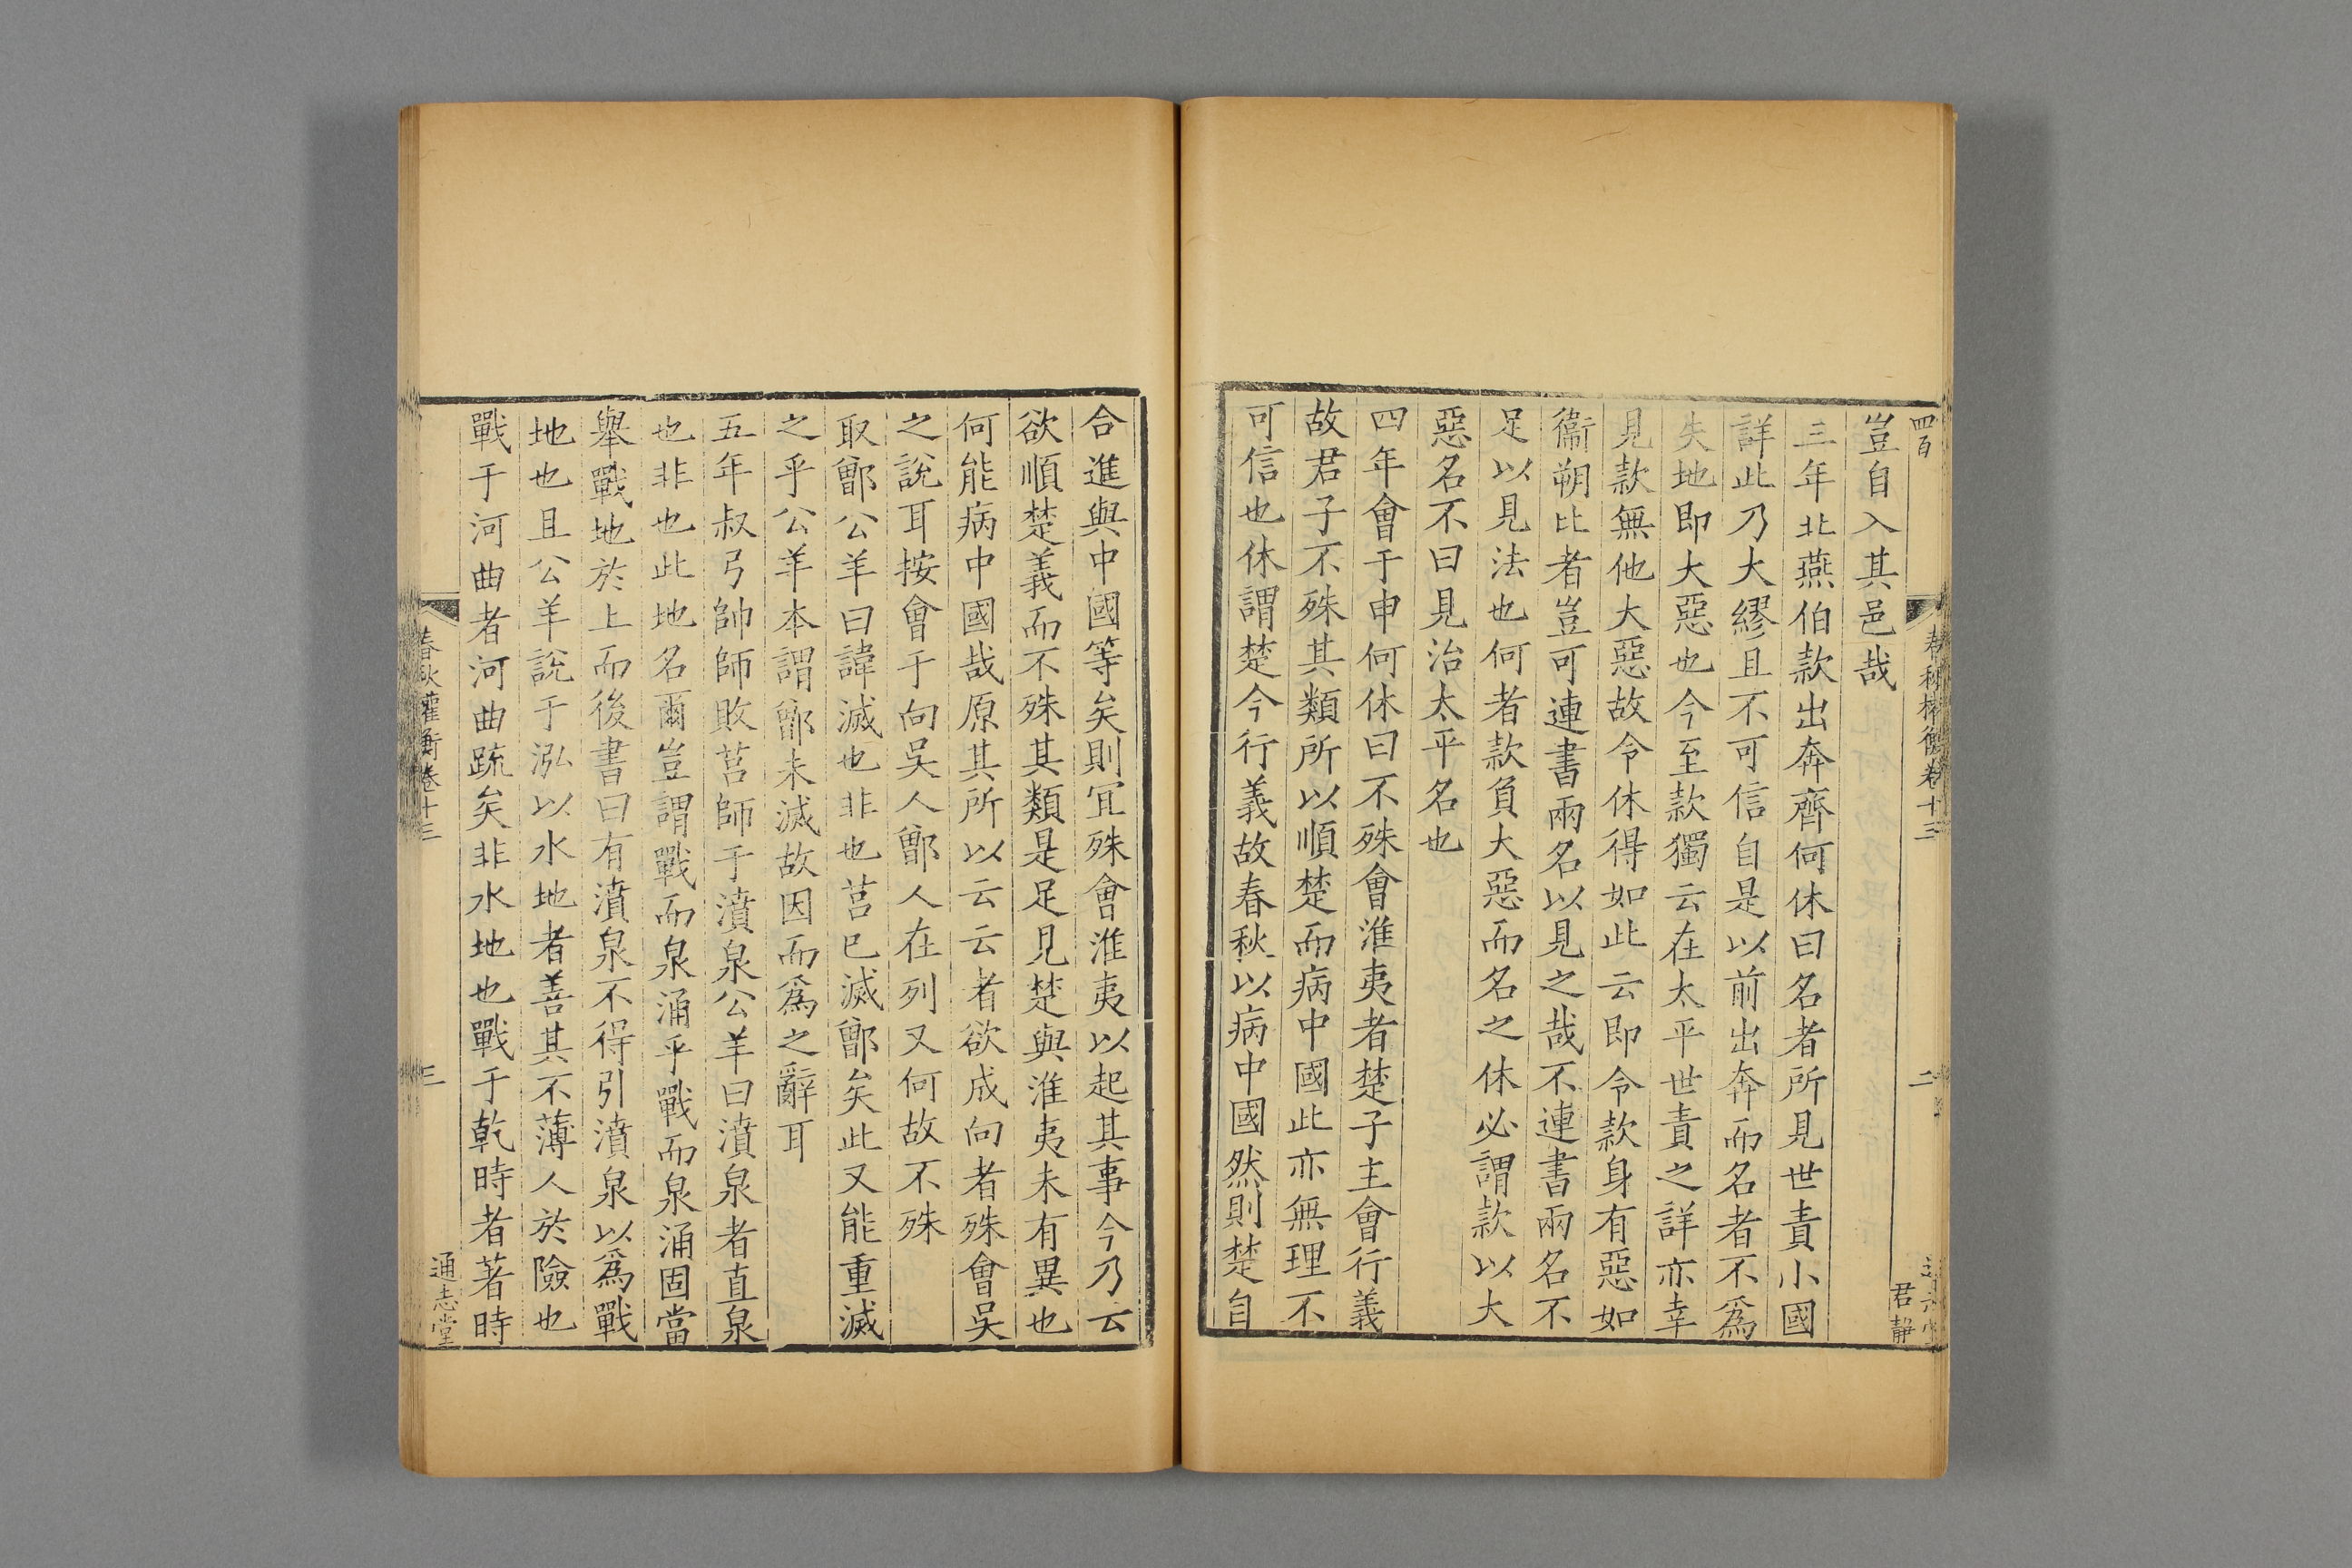 四百
春秋權衡卷十三
二
君靜
豈自入其邑哉
三年北燕伯款出奔齊何休曰名者所見世責小國
詳此乃大繆且不可信自是以前出奔而名者不爲
失地即大惡也今至款獨云在太平世責之詳亦幸
見款無他大惡故令休得如此云即令款身有惡如
衞朔比者豈可連書兩名以見之哉不連書兩名不
足以見法也何者款負大惡而名之休必謂款以大
惡名不曰見治太平名也
四年會于申何休曰不殊會淮夷者楚子主會行義
故君子不殊其類所以順楚而病中國此亦無理不
可信也休謂楚今行義故春秋以病中國然則楚自
合進與中國等矣則冝殊會淮夷以起其事今乃云
欲順楚義而不殊其類是足見楚與淮夷未有異也
何能病中國哉原其所以云云者欲成向者殊會吴
之說耳按會于向吴人鄫人在列又何故不殊
取鄫公羊曰諱滅也非也莒已滅鄫矣此又能重滅
之乎公羊本謂鄫未滅故因而爲之辭耳
五年叔弓帥師敗莒師于濆泉公羊曰濆泉者直泉
也非也此地名爾豈謂戰而泉涌乎戰而泉涌固當
舉戰地於上而後書曰有濆泉不得引濆泉以爲戰
地也且公羊說于泓以水地者善其不薄人於險也
戰于河曲者河曲疏矣非水地也戰于乾時者著時
春秋權衡卷十三
三
通志堂